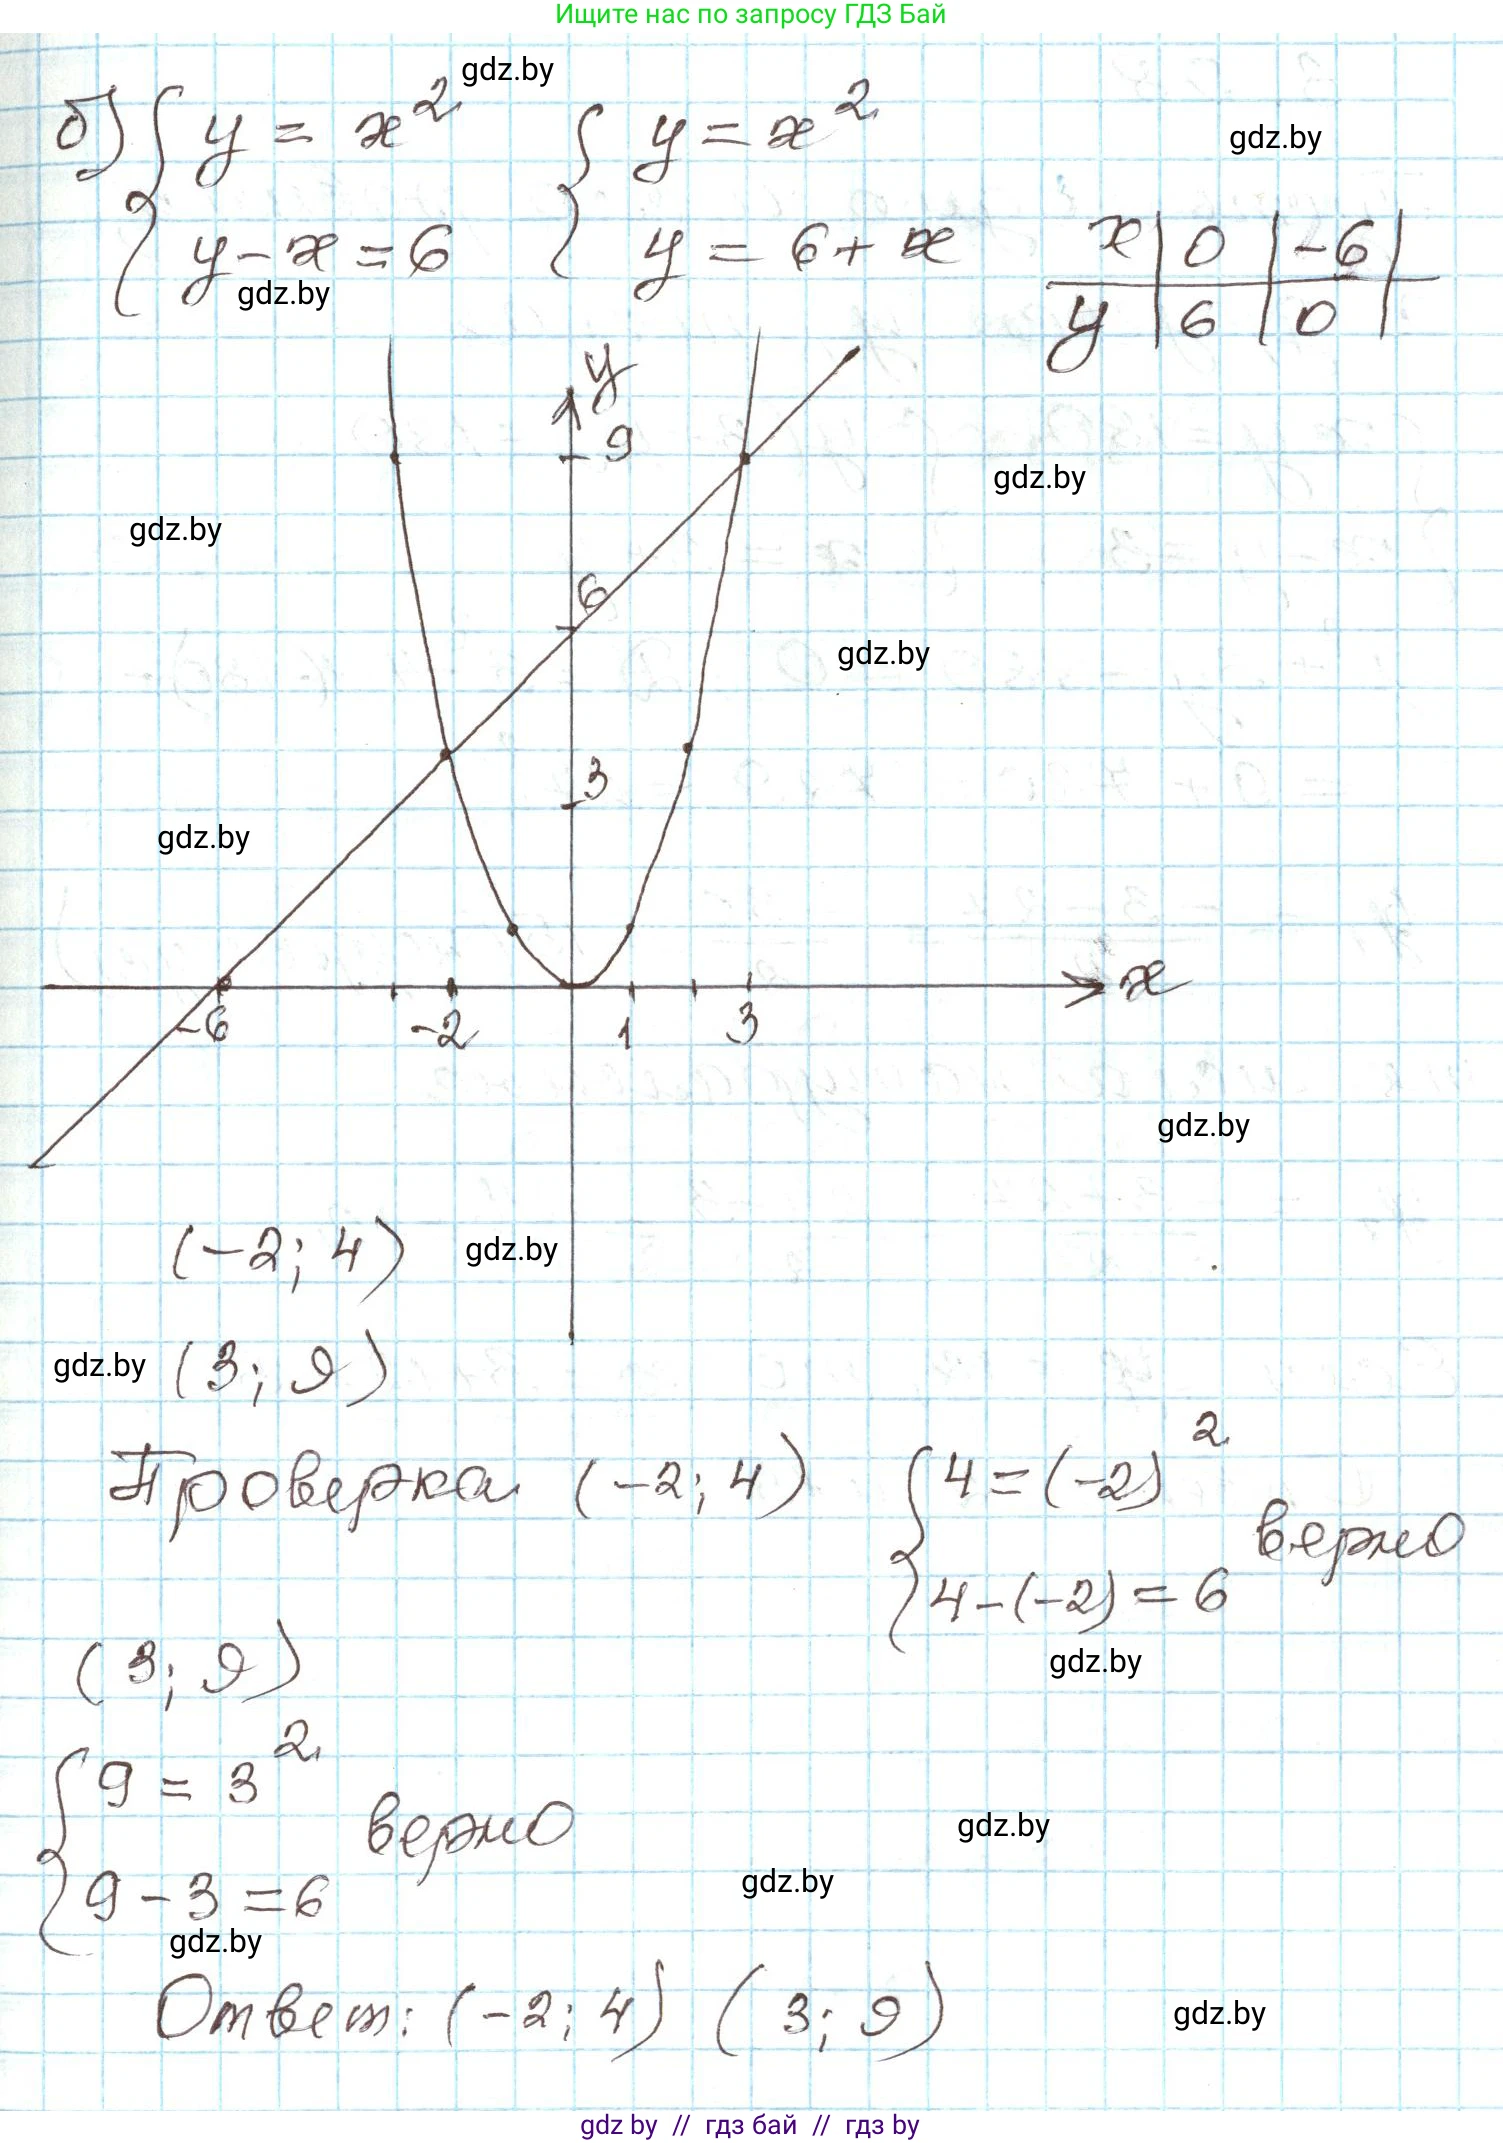 Ищите нас по запросу ГДЗ Бай
gdz.by
б) { y = x² { y = x²
gdz.by
y - x = 6 y = 6 + x
x | 0 | -6 |
y | 6 | 0 |
gdz.by
y
9
gdz.by
gdz.by
6
gdz.by
3
gdz.by
-6 -2 1 3 x
gdz.by
(-2; 4)
gdz.by
gdz.by
(3; 9)
Проверка (-2; 4) { 4 = (-2)²
4 - (-2) = 6 верно
gdz.by
(3; 9)
{ 9 = 3²
9 - 3 = 6 верно
gdz.by
gdz.by
gdz.by
Ответ: (-2; 4) (3; 9)
gdz.by
gdz by // гдз бай // гдз by